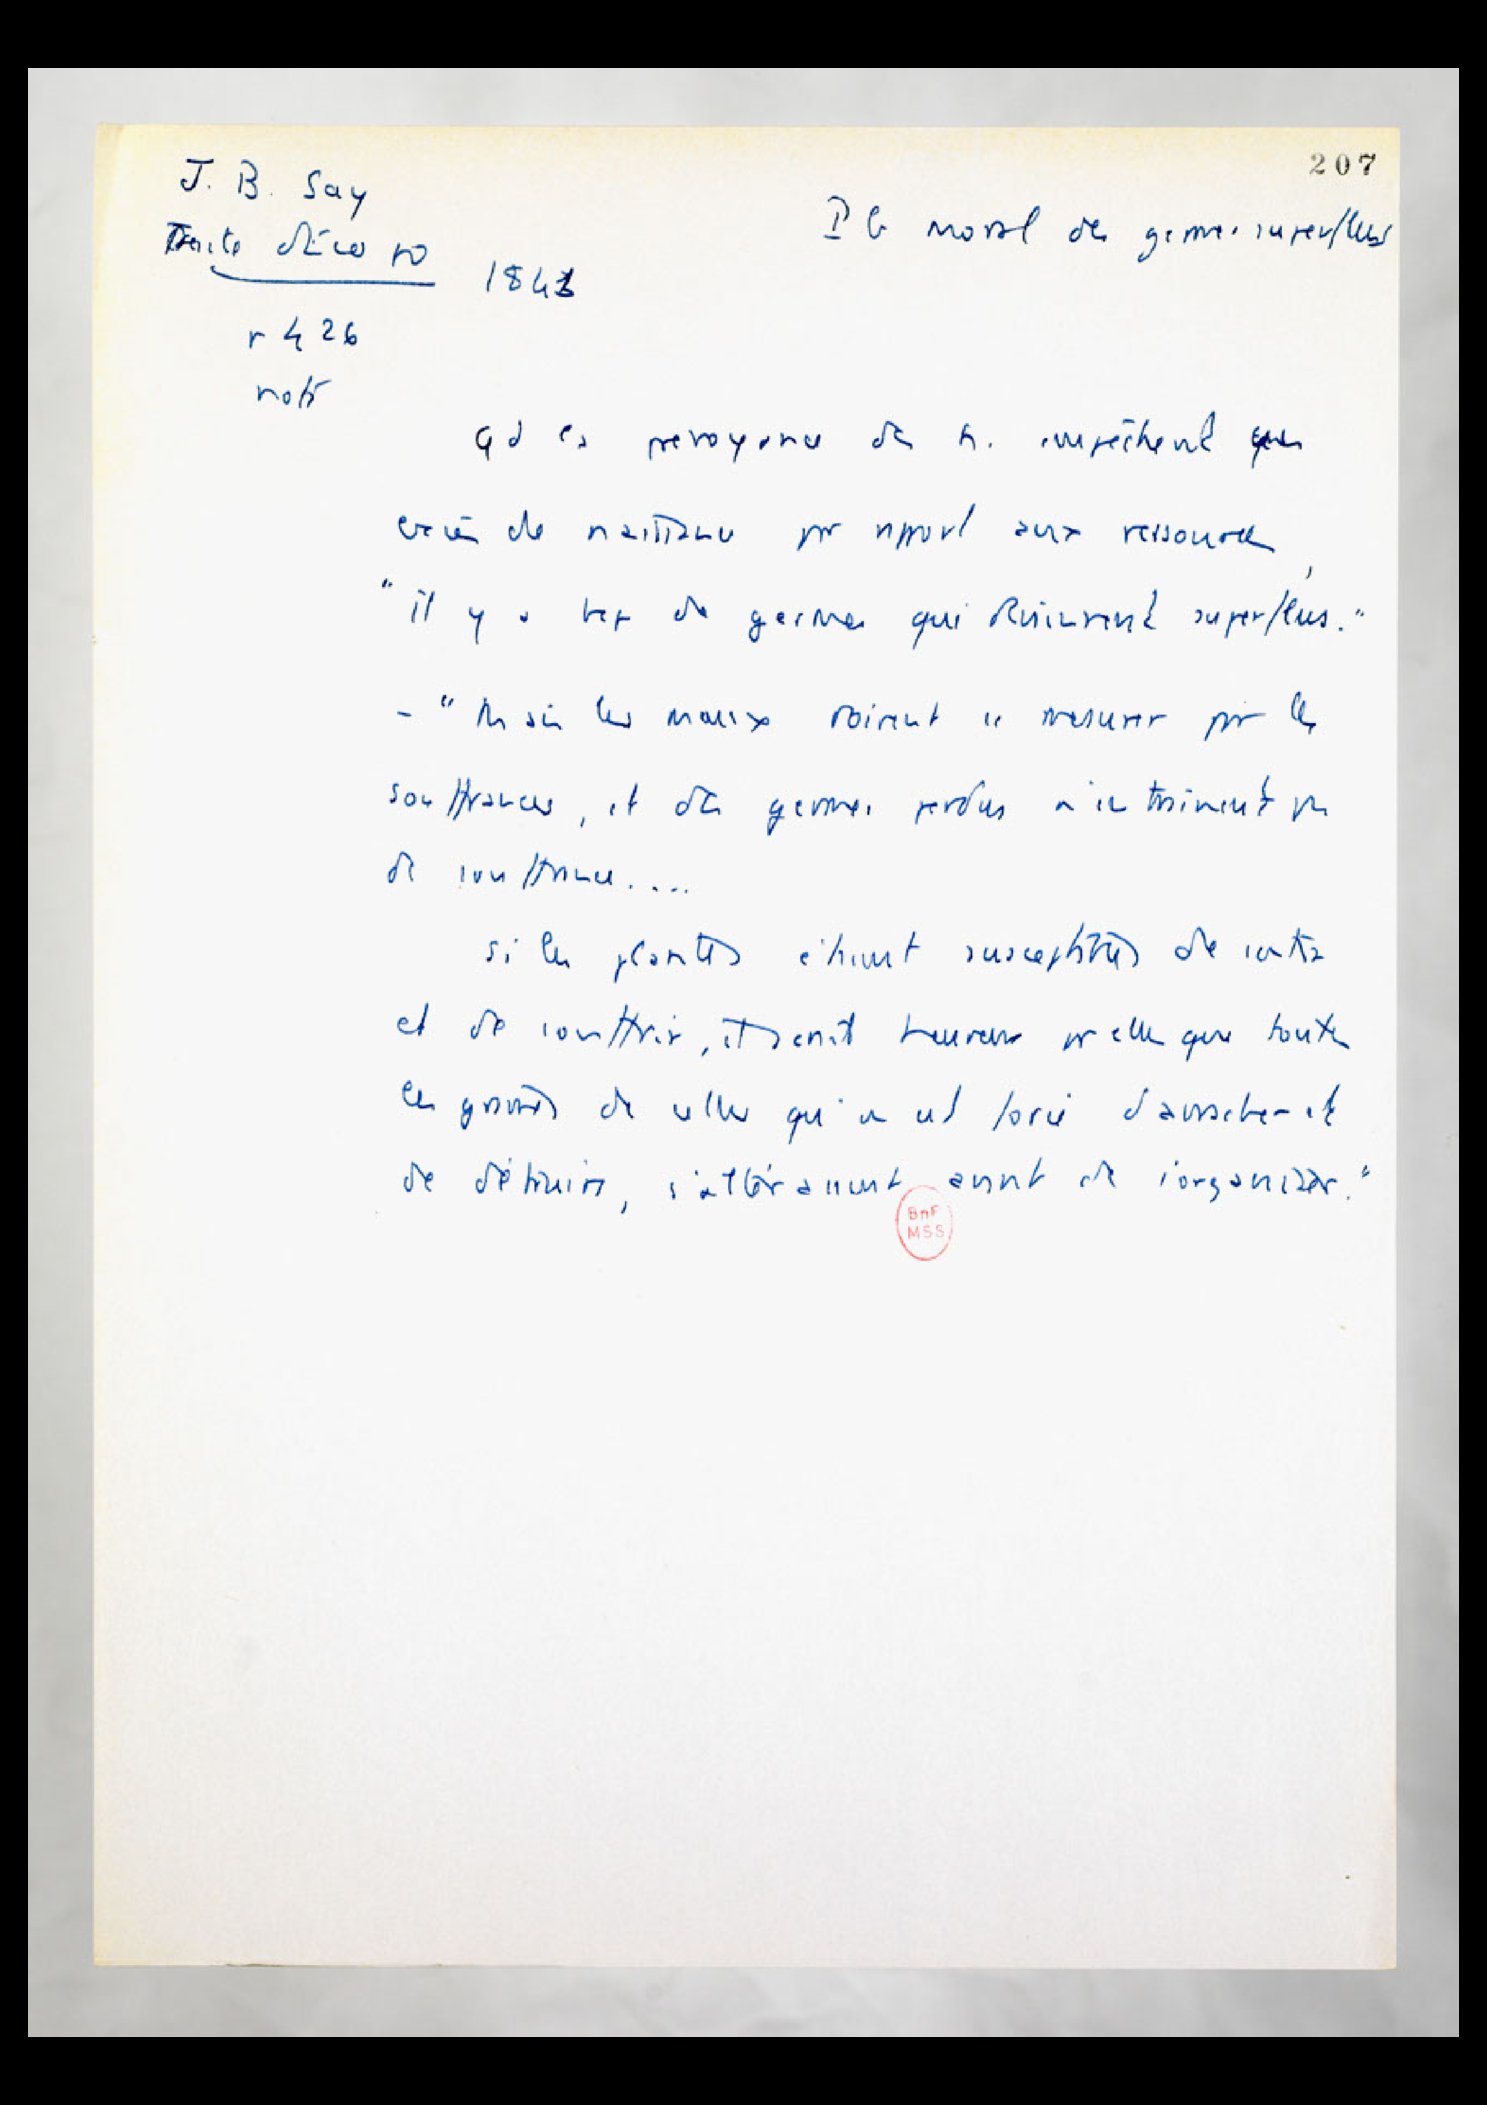 207
J. B. Say
Traité d'éco po 1841
Pb moral des germes superflus
p 426
note
Qd la prevoyance des h. empêchent que
excès de naissance par rapport aux ressources,
"il y a bcp de germes qui deviennent superflus."
- "Mais les maux doivent se mesurer par les
souffrances, et des germes perdus n'entrainent pas
de souffrance....
si les plantes étaient susceptibles de sentir
et de souffrir, il serait heureux pr elles que toutes
les graines de celles qu'on est forcé d'arracher et
de détruire, s'altérassent avant de s'organiser."
BnF
MSS